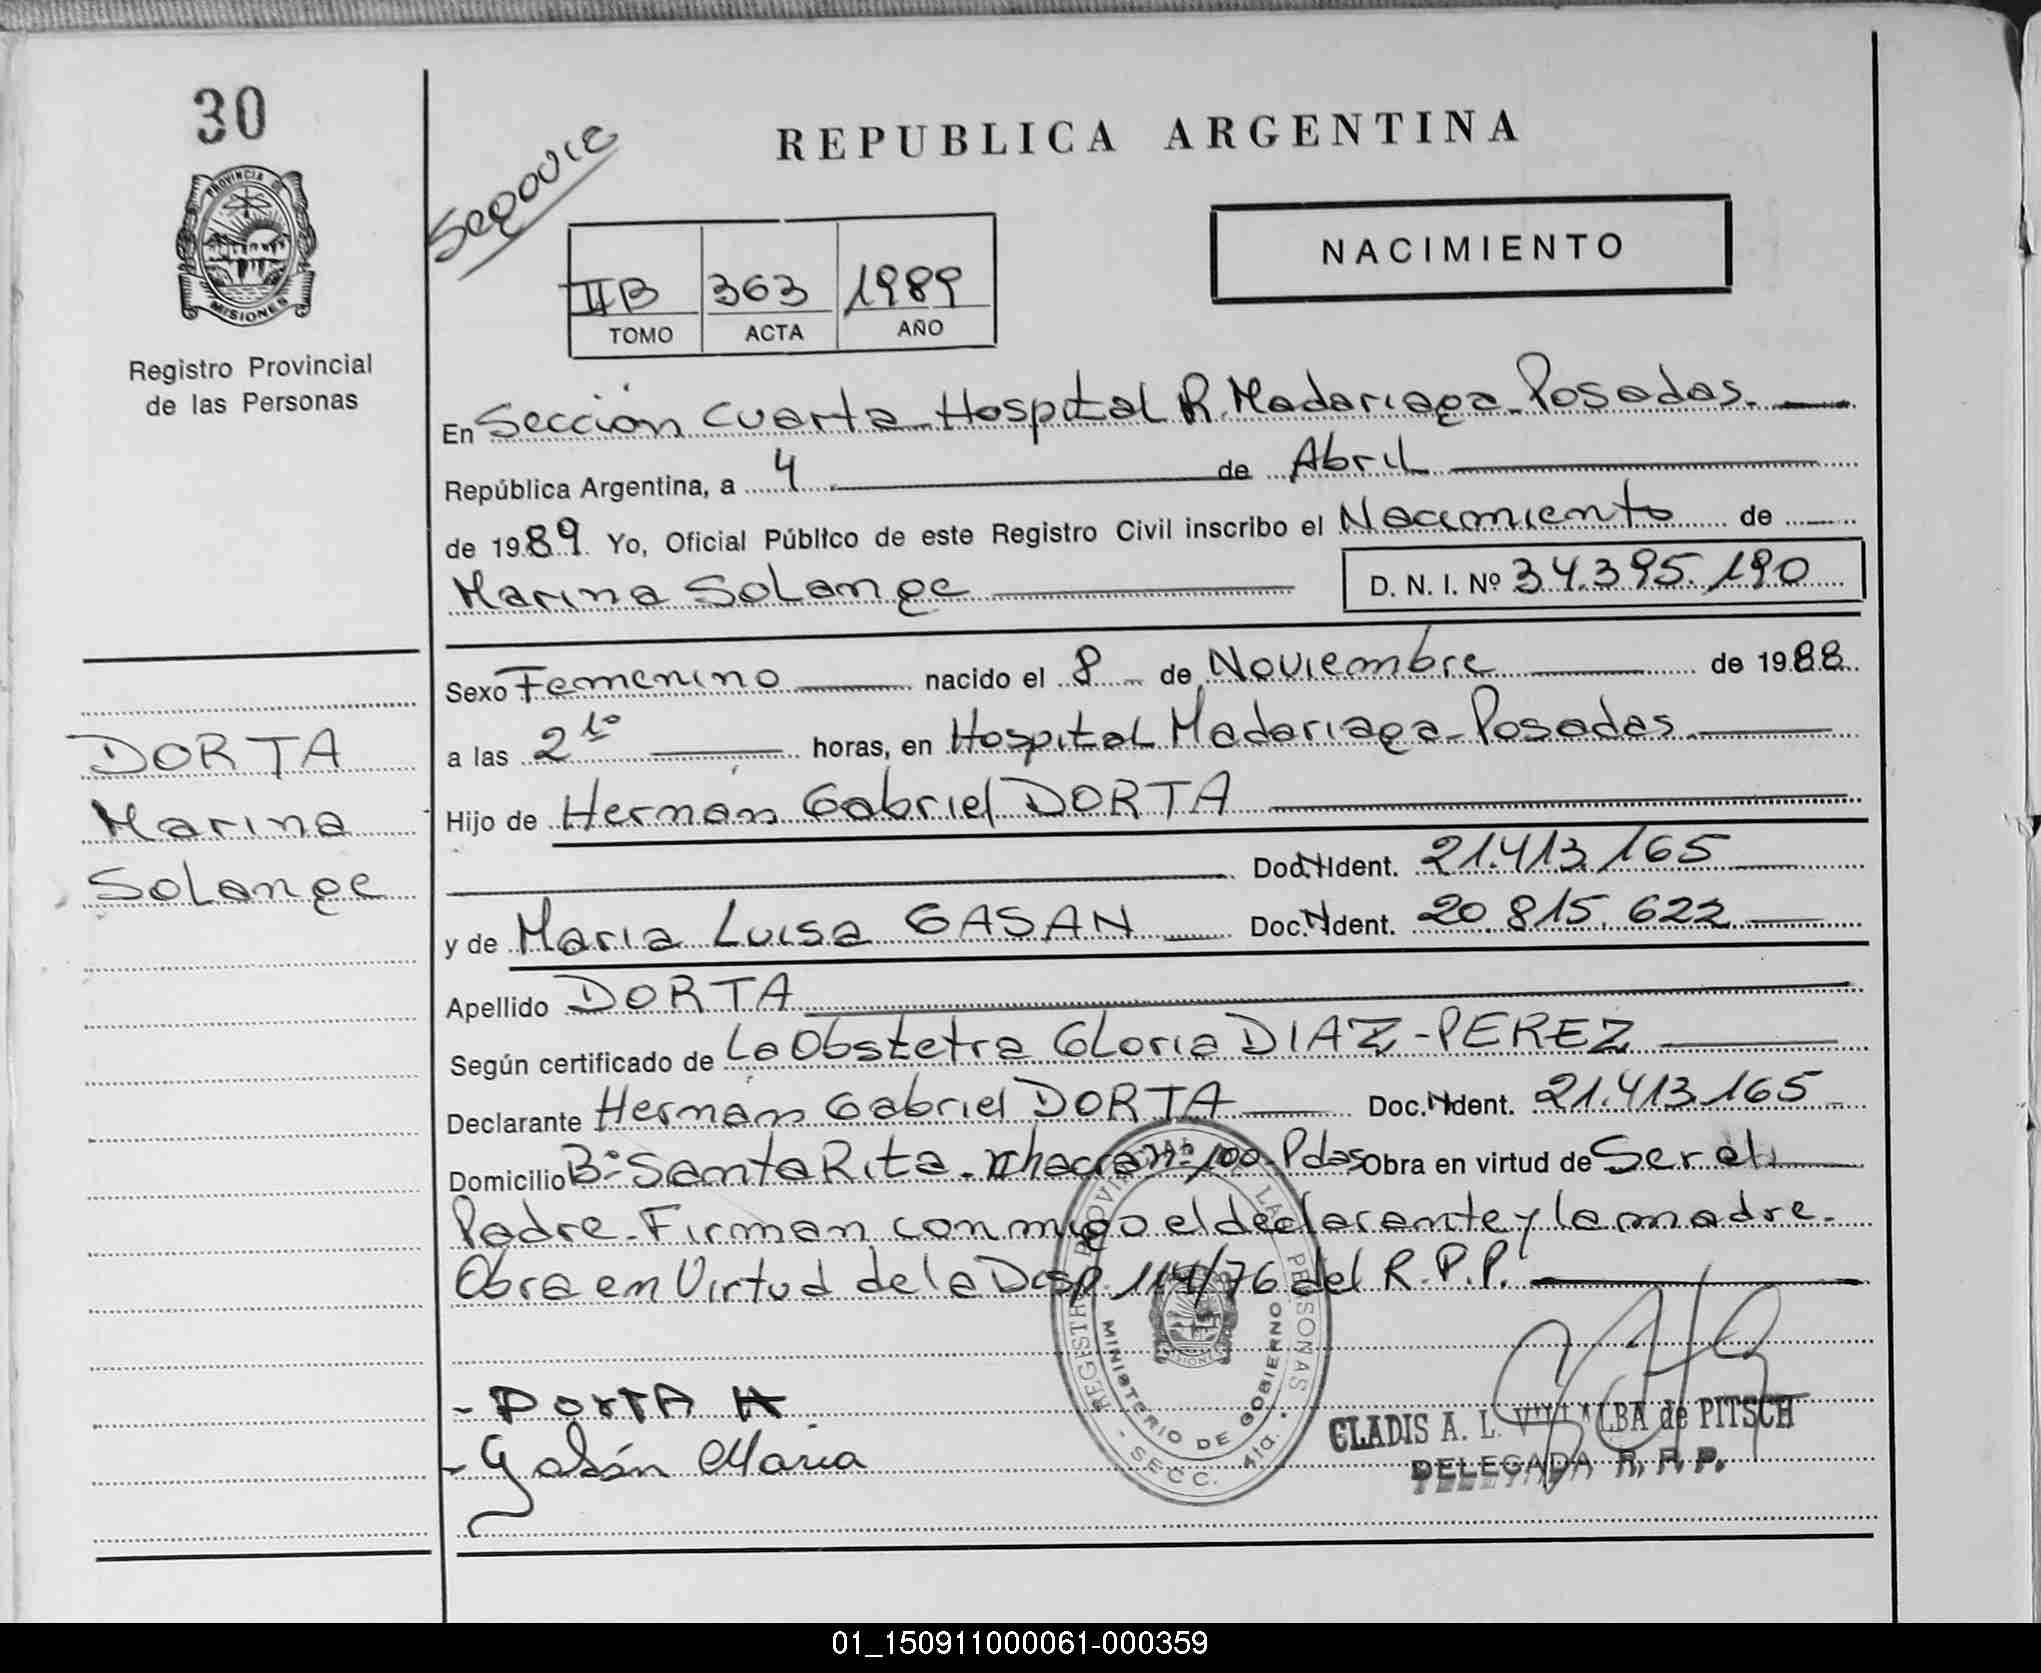 30
PROVINCIA DE
MISIONES
Registro Provincial
de las Personas
DORTA
Marina
Solange
REPUBLICA ARGENTINA
NACIMIENTO
II B 363 1989
TOMO ACTA AÑO
En Sección Cuarta Hospital R. Madariaga Posadas.
República Argentina, a 4 de Abril
de 1989. Yo, Oficial Público de este Registro Civil inscribo el Nacimiento de
Marina Solange D. N. I. Nº 34.395.190
Sexo Femenino nacido el 8 de Noviembre de 1988
a las 2 10 horas, en Hospital Madariaga Posadas
Hijo de Hernan Gabriel DORTA
Doc. Ident. 21.413.165
y de Maria Luisa GASAN Doc. Ident. 20.815.622
Apellido DORTA
Según certificado de La Obstetra Gloria DIAZ-PEREZ
Declarante Hernan Gabriel DORTA Doc. Ident. 21.413.165
Domicilio Bº Santa Rita chacra nº 100 Pdas Obra en virtud de Ser el
Padre. Firman conmigo el declarante y la madre.
Obra en Virtud de la Disp. 114/76 del R.P.P.
REGISTRO PROVINCIAL LAS PERSONAS
MINISTERIO DE GOBIERNO
- SECC. 4ta. -
- DORTA H
- Gasán Maria
GLADIS A. L. VILLALBA de PITSCH
DELEGADA R. P. P.
01_150911000061-000359